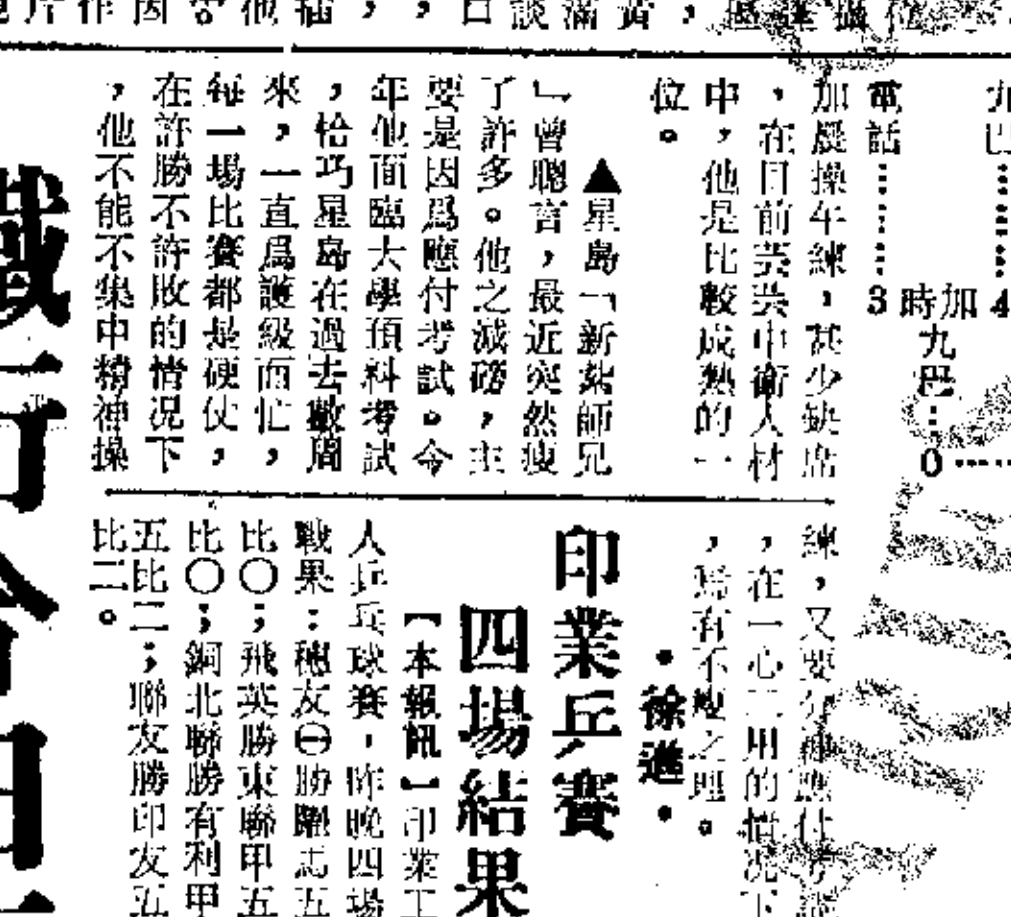 加晨操午練，甚少缺席
，在目前芸芸中衛人材
中，他是比較成熟的一
位。
▲星島「新紮師兄
」曾聰言，最近突然瘦
了許多。他之減磅，主
要是因爲應付考試。今
年他面臨大學預科考試
，恰巧星島在過去數周
來，一直爲護級而忙，
每一場比賽都是硬仗，
在許勝不許敗的情况下
，他不能不集中精神操
練，又要分神應付考試
，在一心二用的情况下
，焉有不瘦之理。
·徐進·
九巴……4
加時
電話……3
九巴……0
印業乒賽
四場結果
【本報訊】印業工
人乒乓球賽，昨晚四場
戰果：穗友㊀勝躍志五
比〇；飛英勝東聯甲五
比〇；銅北聯勝有利甲
五比二；聯友勝印友五
比二。